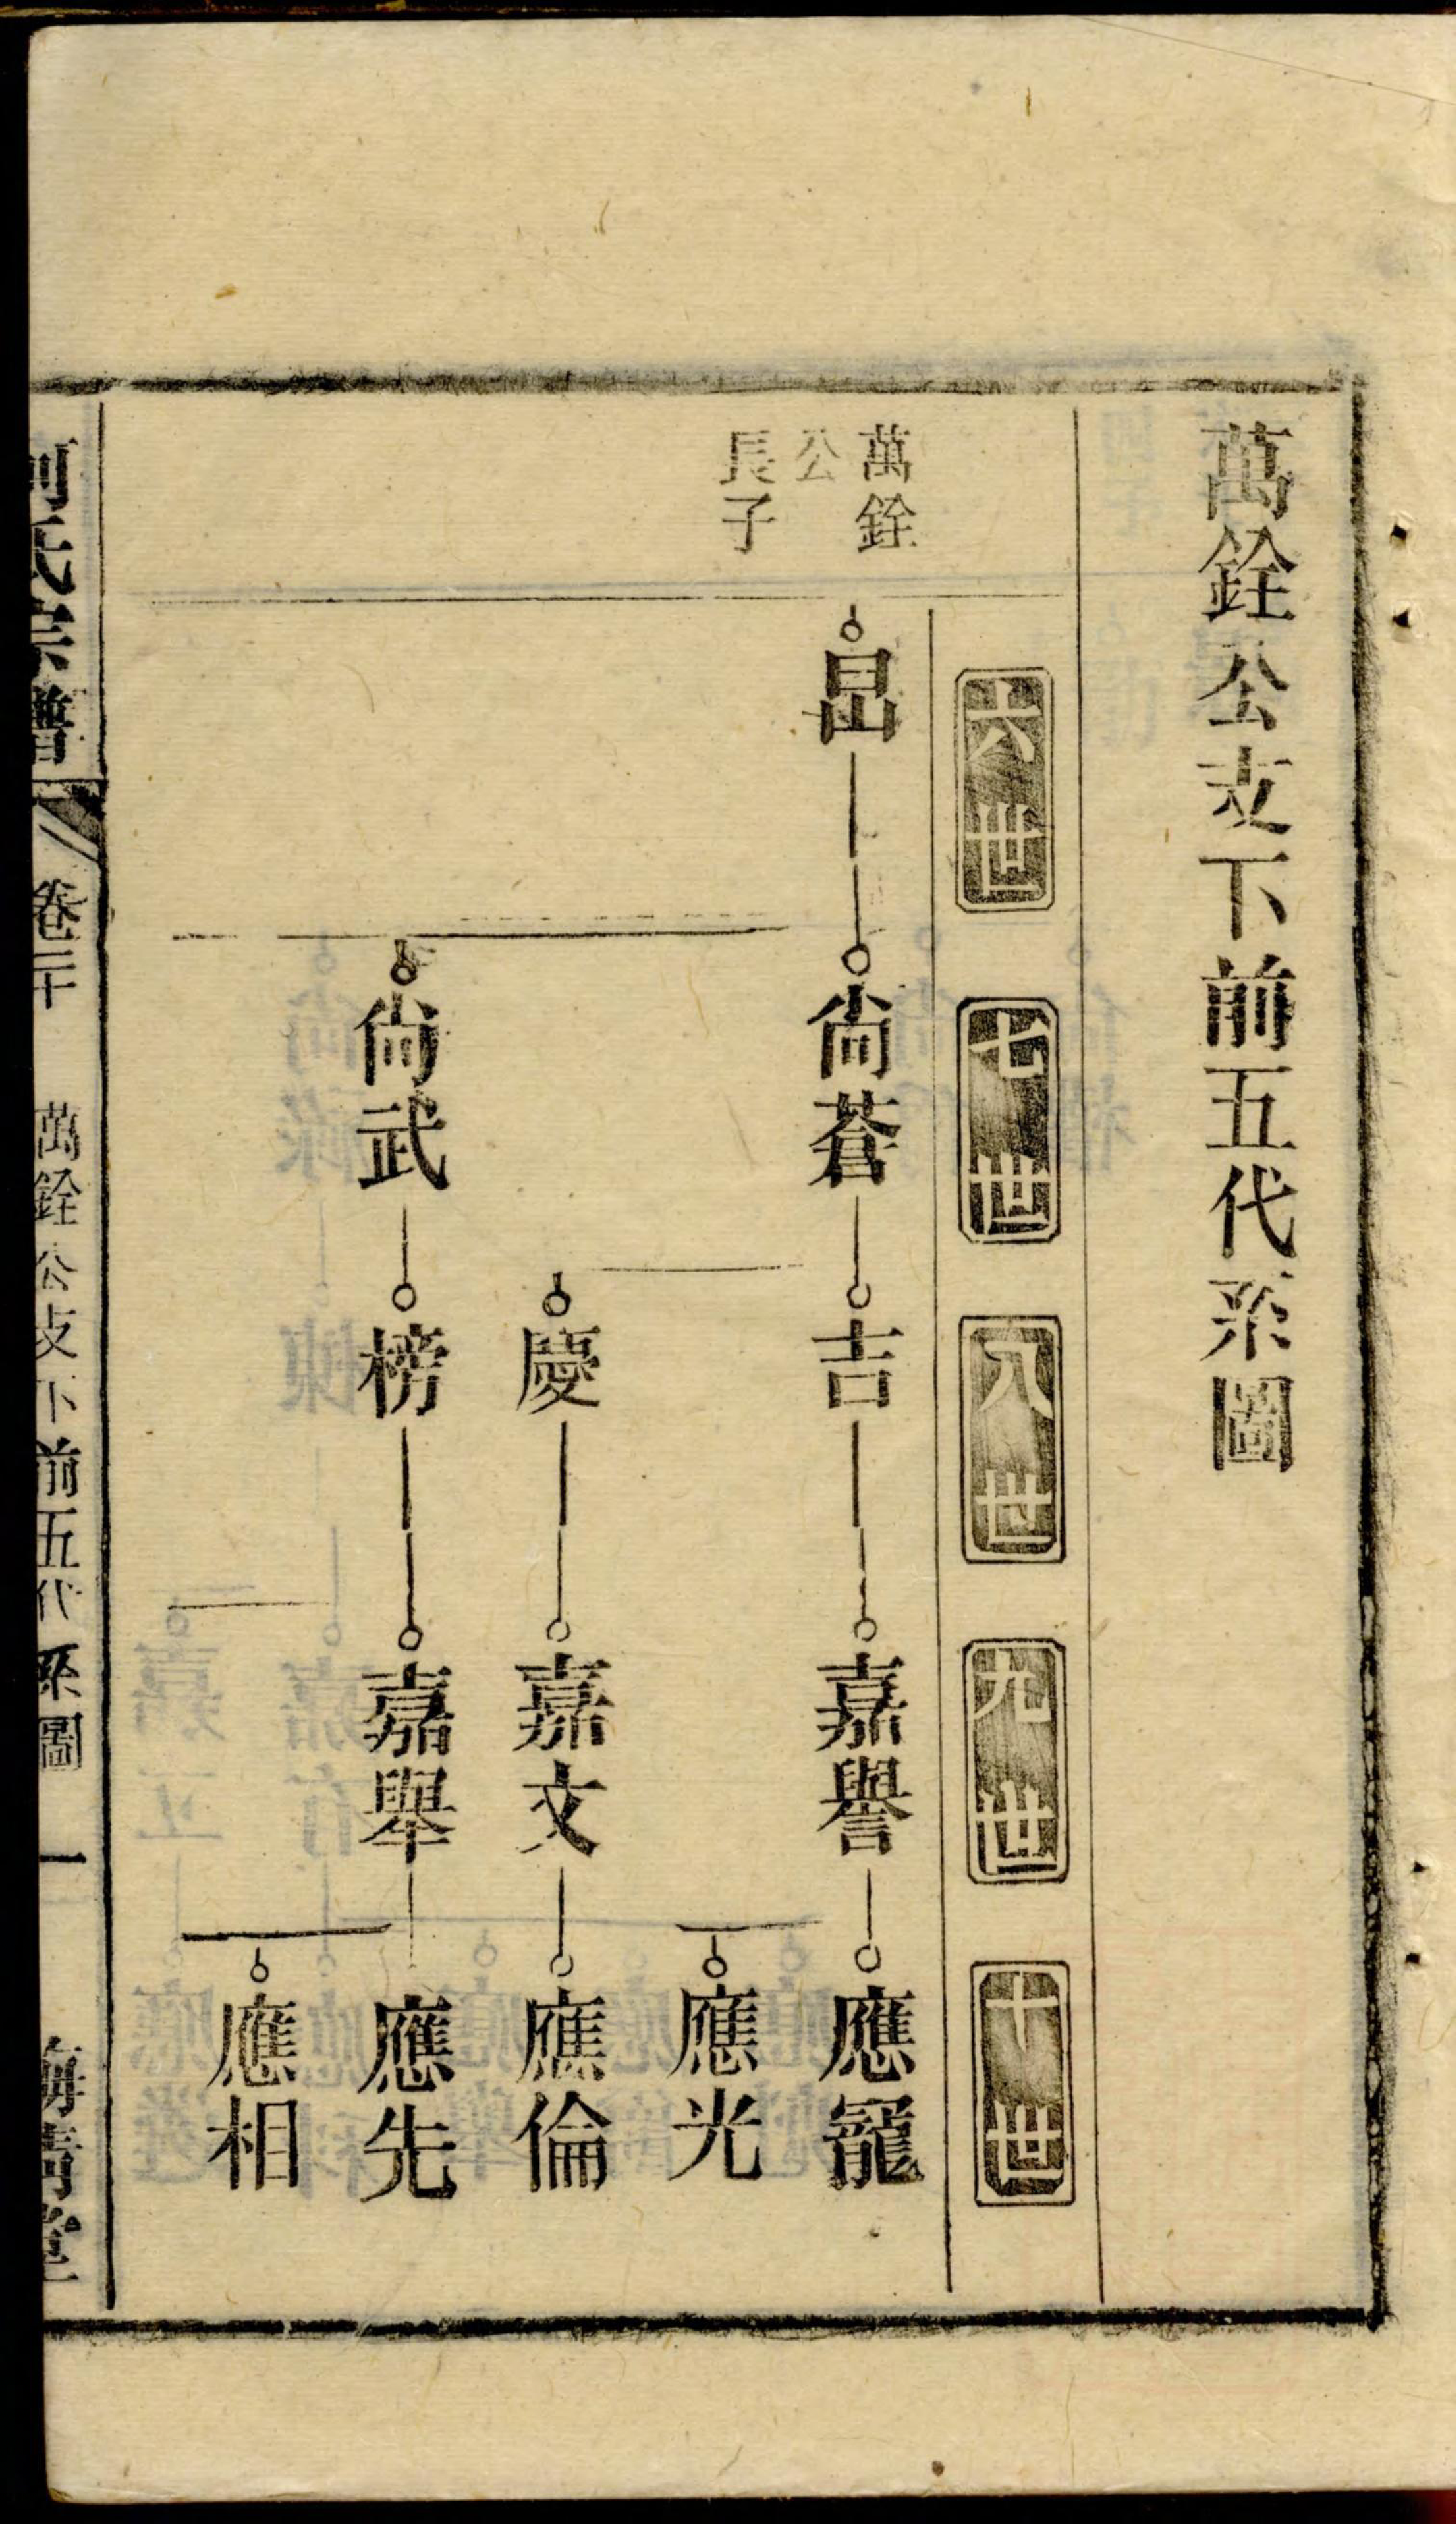 萬銓公支下前五代系圖
六世 七世 八世 九世 十世
萬銓
公
長子
旵 尚蒼 吉 嘉譽 應寵
應光
慶 嘉文 應倫
尚武 榜 嘉舉 應先
應相
氏宗譜 卷二十 萬銓公支下前五代系圖 一 堂